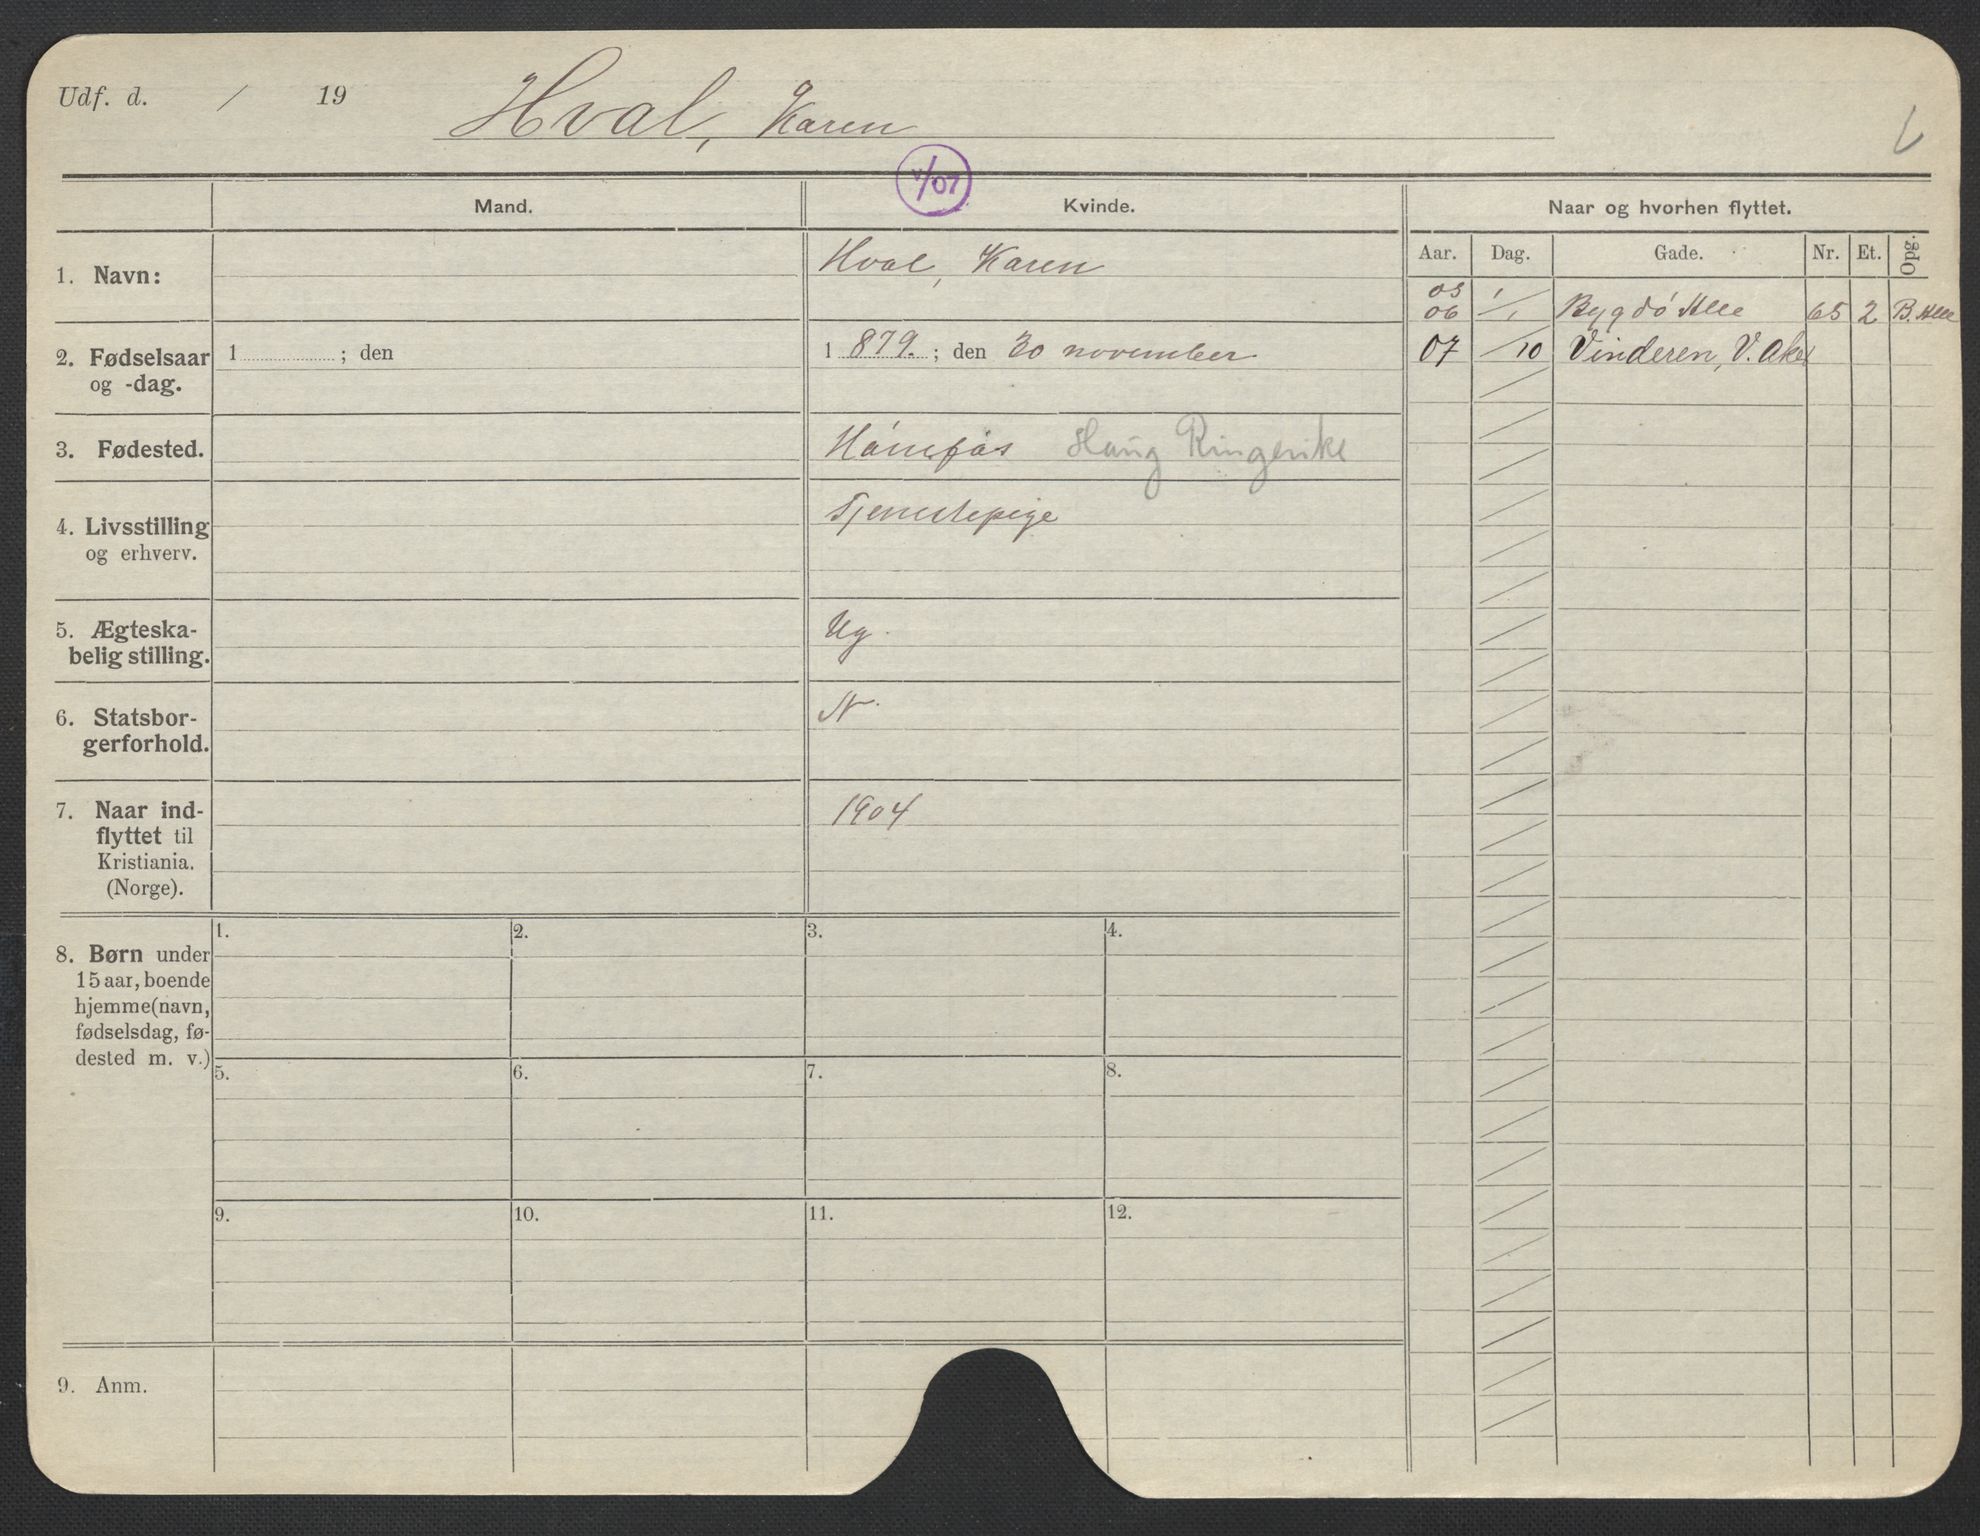 Udf. d. / 19 Hval, Karen
V/07
Mand. Kvinde. Naar og hvorhen flyttet.
Aar. Dag. Gade. Nr. Et. Opg.
1. Navn: Hval, Karen
05 1/
06 /1 Bygdö Alle 65 2 B. Alle
07 /10 Vinderen, V. Aker
2. Fødselsaar 1 ; den 1 879. ; den 30 november
og -dag.
3. Fødested. Hönefos Haug Ringerike
4. Livsstilling Tjenestepige
og erhverv.
5. Ægteska- Ug.
belig stilling.
6. Statsbor- N.
gerforhold.
7. Naar ind- 1904
flyttet til
Kristiania.
(Norge).
1. 2. 3. 4.
8. Børn under
15 aar, boende
hjemme (navn,
fødselsdag, fø-
dested m. v.)
5. 6. 7. 8.
9. 10. 11. 12.
9. Anm.